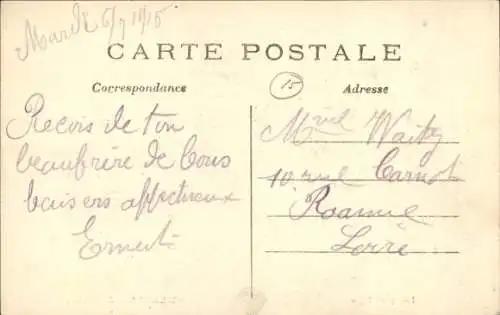 Mardi 6/7 1915
CARTE POSTALE
Correspondance
15
Adresse
Recois de ton
beaufrère de bons
baisers affectueux
Ernest
10 rue Carnot
Roanne
Loire